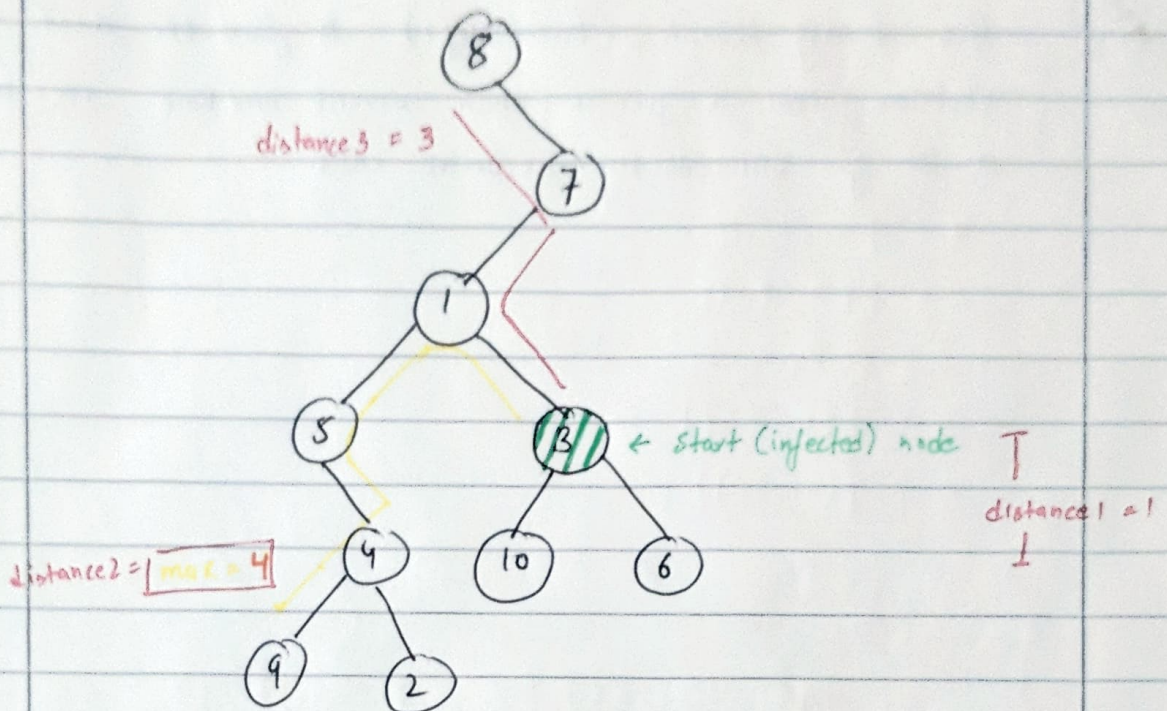 8
distance3 = 3
7
1
5
3
← start (infected) node
distance1 = 1
4
10
6
distance2 = max = 4
9
2